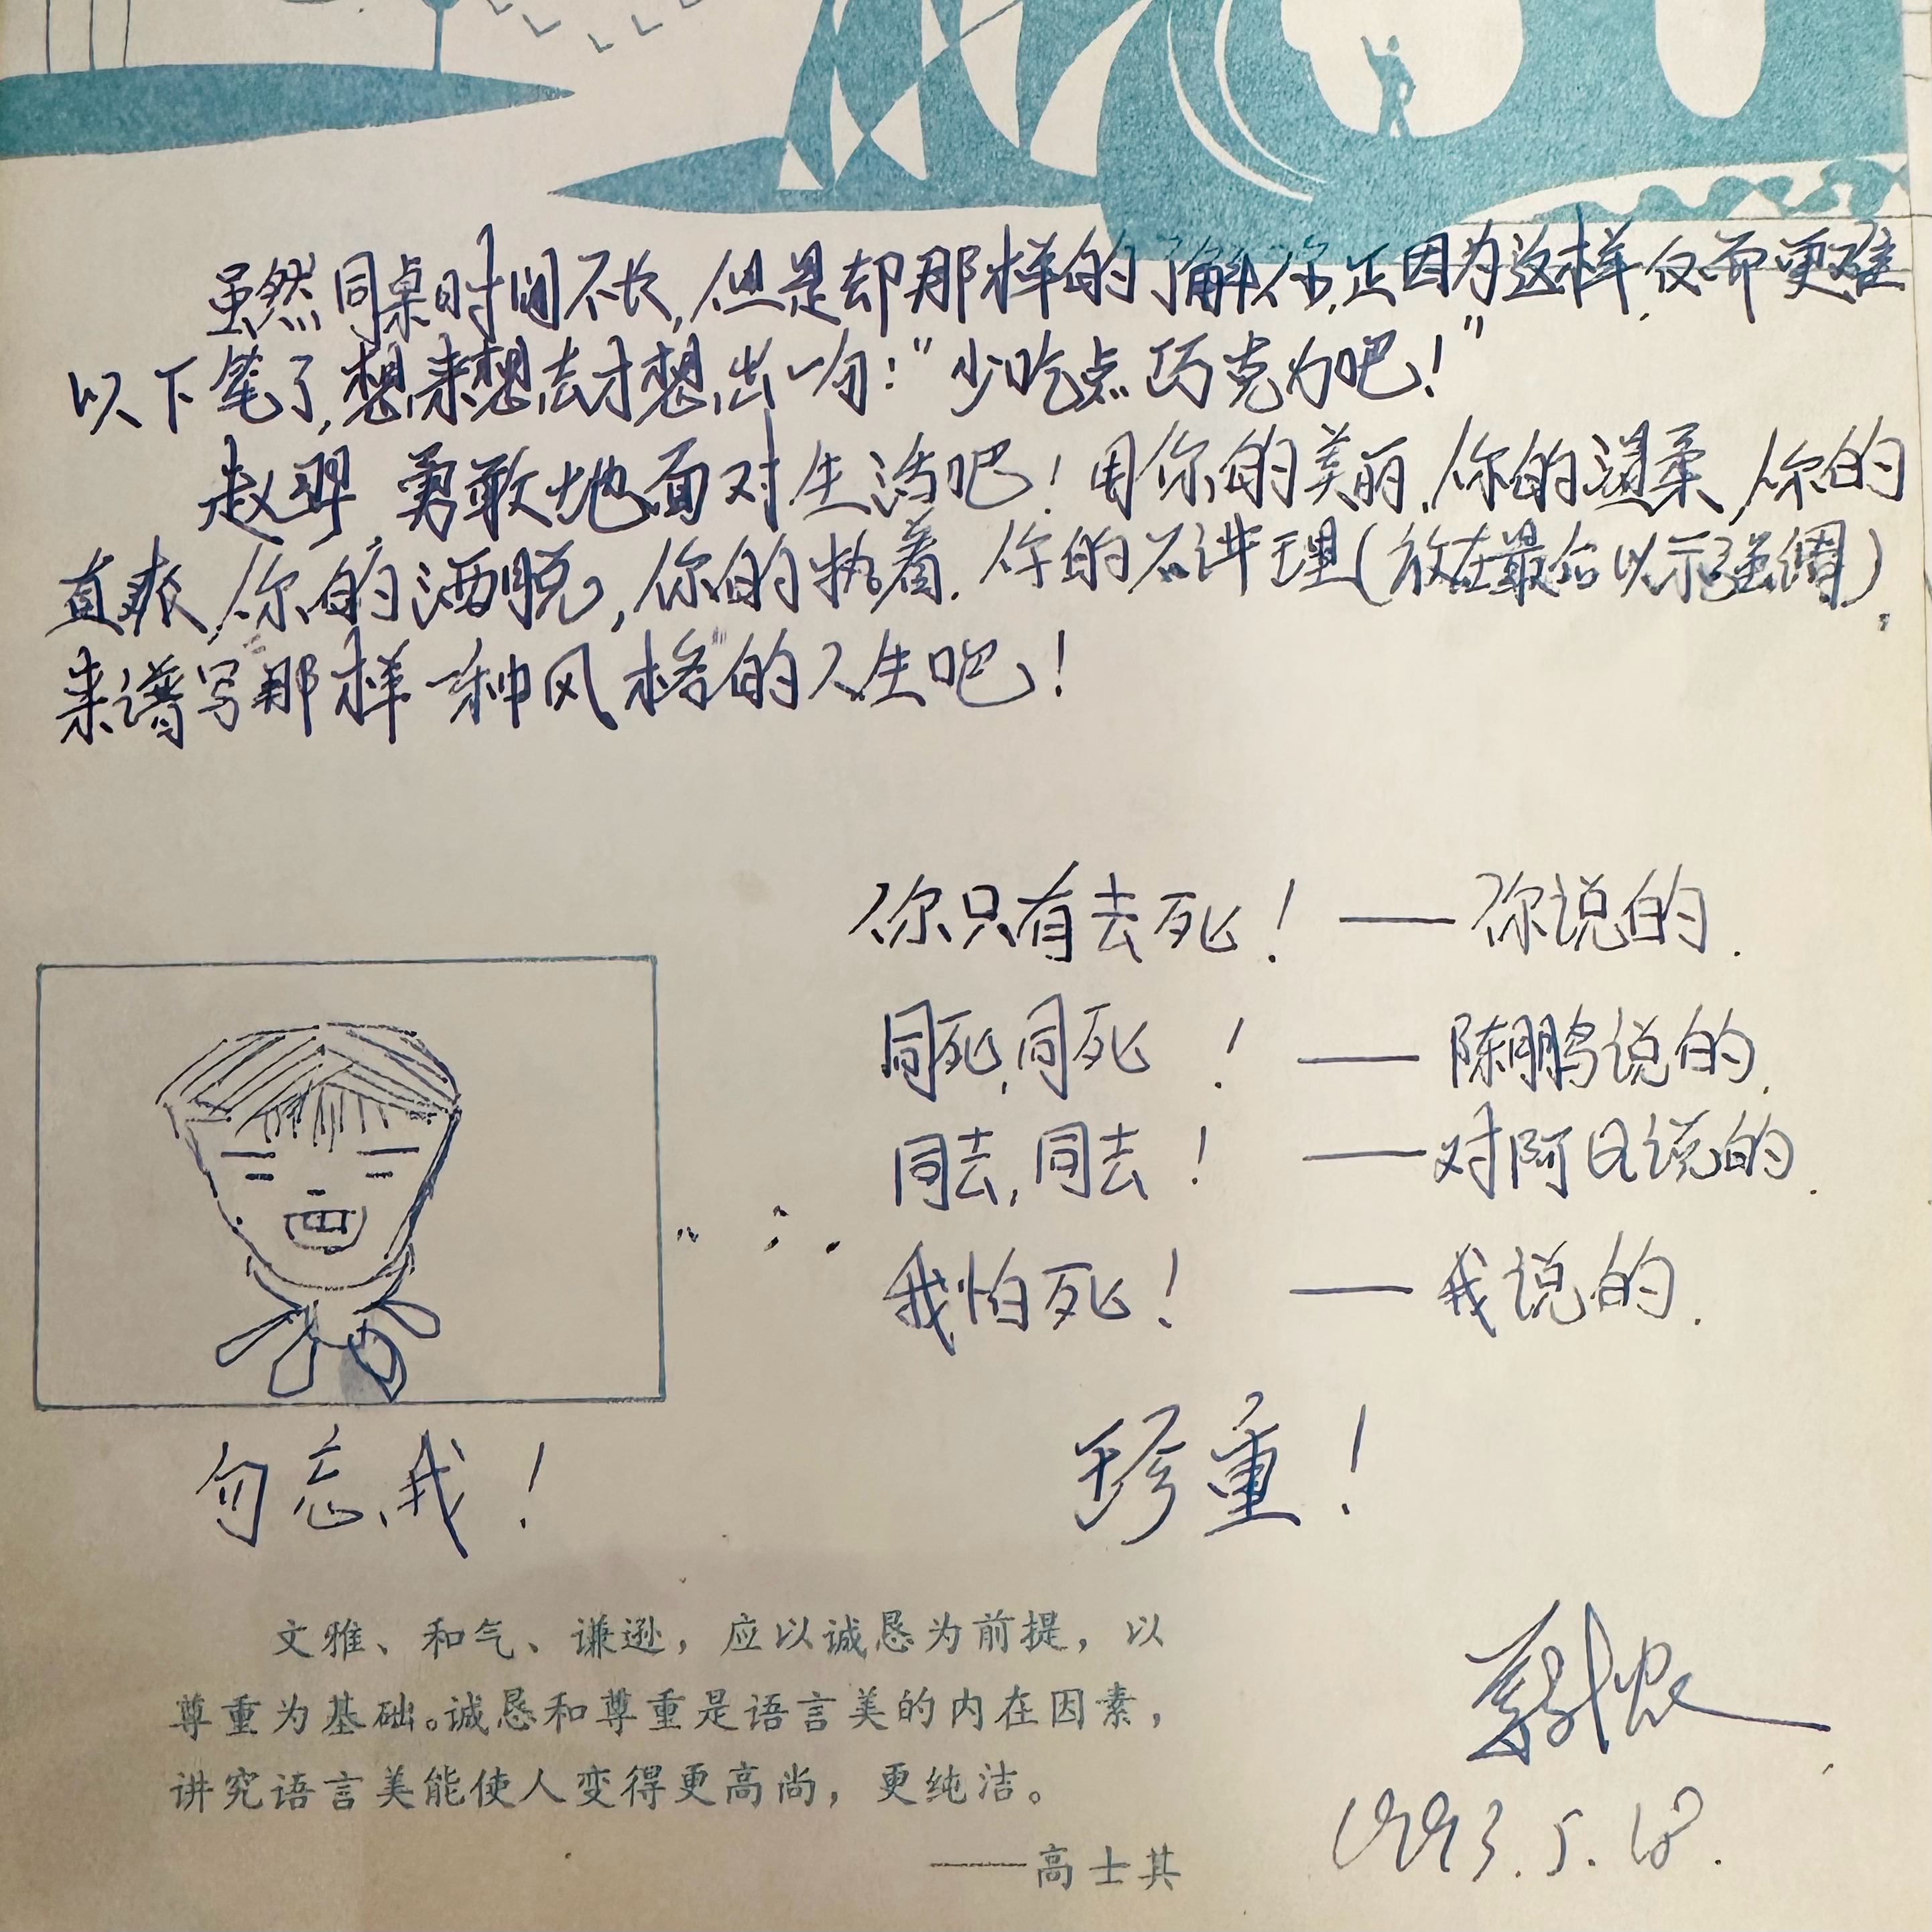 虽然同桌时间不长,但是却那样的了解你,正因为这样,反而更难
以下笔了,想来想去才想出一句:"少吃点巧克力吧!"
赵 勇敢地面对生活吧!用你的美丽,你的温柔,你的
直爽,你的洒脱,你的执着,你的不讲理(放在最后以示强调),
来谱写那样一种风格的人生吧!
你只有去死!——你说的.
同死,同死!——陈鹏说的.
同去,同去!——对阿Q说的.
我怕死!——我说的.
勿忘我!
珍重!
文雅、和气、谦逊，应以诚恳为前提，以
尊重为基础。诚恳和尊重是语言美的内在因素，
讲究语言美能使人变得更高尚，更纯洁。
——高士其
1993.5.18.